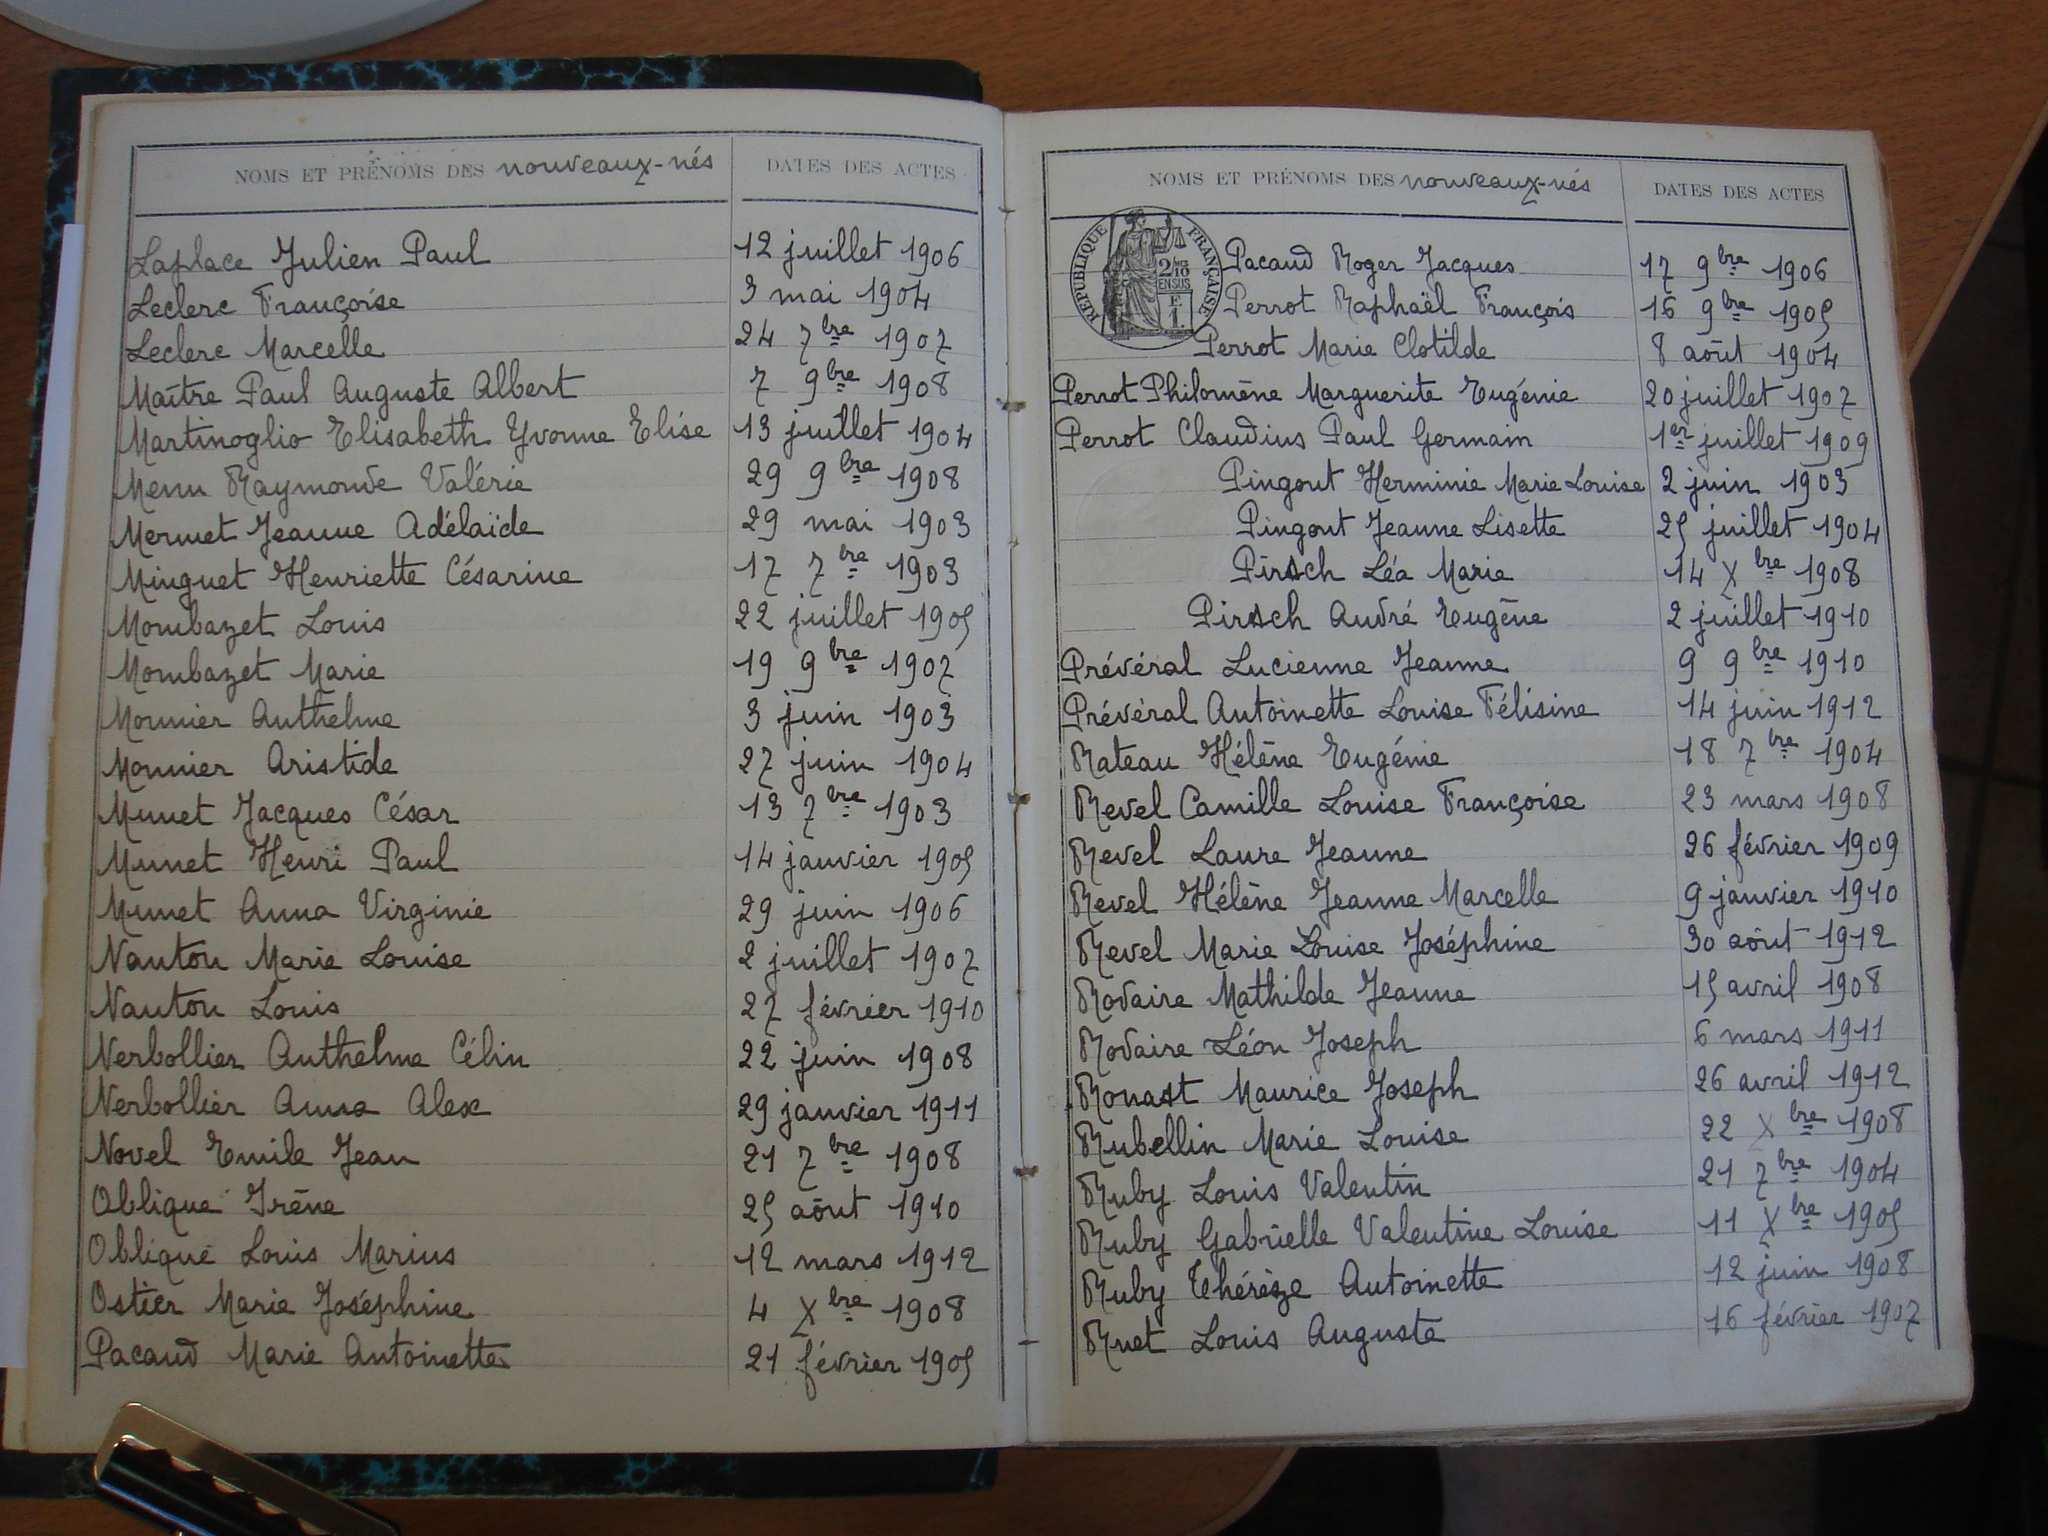 NOMS ET PRÉNOMS DES nouveaux-nés DATES DES ACTES
Laplace Julien Paul 12 juillet 1906
Leclerc Françoise 3 mai 1904
Leclerc Marcelle 24 7bre 1907
Maître Paul Auguste Albert 7 9bre 1908
Martinoglio Elisabeth Yvonne Elise 13 juillet 1904
Menu Raymonde Valérie 29 9bre 1908
Mermet Jeanne Adélaïde 29 mai 1903
Minguet Henriette Césarine 17 7bre 1903
Mombazet Louis 22 juillet 1905
Mombazet Marie 19 9bre 1907
Monnier Anthelme 3 juin 1903
Monnier Aristide 27 juin 1904
Munet Jacques César 13 7bre 1903
Munet Henri Paul 14 janvier 1905
Munet Anna Virginie 29 juin 1906
Nanton Marie Louise 2 juillet 1907
Nanton Louis 27 février 1910
Nerbollier Anthelme Célin 22 juin 1908
Nerbollier Anna Alex 29 janvier 1911
Novel Emile Jean 21 7bre 1908
Oblique Irène 25 aôut 1910
Oblique Louis Marius 12 mars 1912
Ostier Marie Joséphine 4 Xbre 1908
Pacaud Marie Antoinette 21 février 1905
NOMS ET PRÉNOMS DES nouveaux-nés DATES DES ACTES
RÉPUBLIQUE FRANÇAISE
2/10
EN SUS
F.
1.
Pacaud Roger Jacques 17 9bre 1906
Perrot Raphaël François 16 9bre 1905
Perrot Marie Clotilde 8 aôut 1904
Perrot Philomène Marguerite Eugénie 20 juillet 1907
Perrot Claudius Paul Germain 1er juillet 1909
Pingout Herminie Marie Louise 2 juin 1903
Pingout Jeanne Lisette 25 juillet 1904
Pirsch Léa Marie 14 Xbre 1908
Pirsch André Eugène 2 juillet 1910
Prévéral Lucienne Jeanne 9 9bre 1910
Prévéral Antoinette Louise Félisine 14 juin 1912
Rateau Hélène Eugénie 18 7bre 1904
Revel Camille Louise Françoise 23 mars 1908
Revel Laure Jeanne 26 février 1909
Revel Hélène Jeanne Marcelle 9 janvier 1910
Revel Marie Louise Joséphine 30 aôut 1912
Rodaire Mathilde Jeanne 15 avril 1908
Rodaire Léon Joseph 6 mars 1911
Ronast Maurice Joseph 26 avril 1912
Rubellin Marie Louise 22 Xbre 1908
Ruby Louis Valentin 21 7bre 1904
Ruby Gabrielle Valentine Louise 11 Xbre 1905
Ruby Thérèze Antoinette 12 juin 1908
Ruet Louis Auguste 16 février 1907